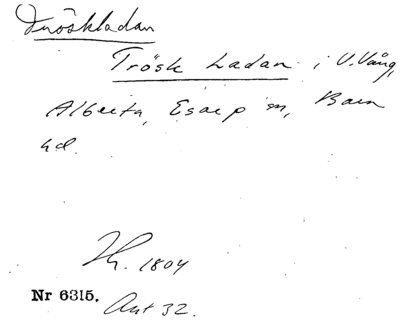 Tröskladan
Trösk Ladan i V. Vång,
Alberta, Esarp sn, Bara
hd.
Th. 1804
Nr 6315. Akt 32.